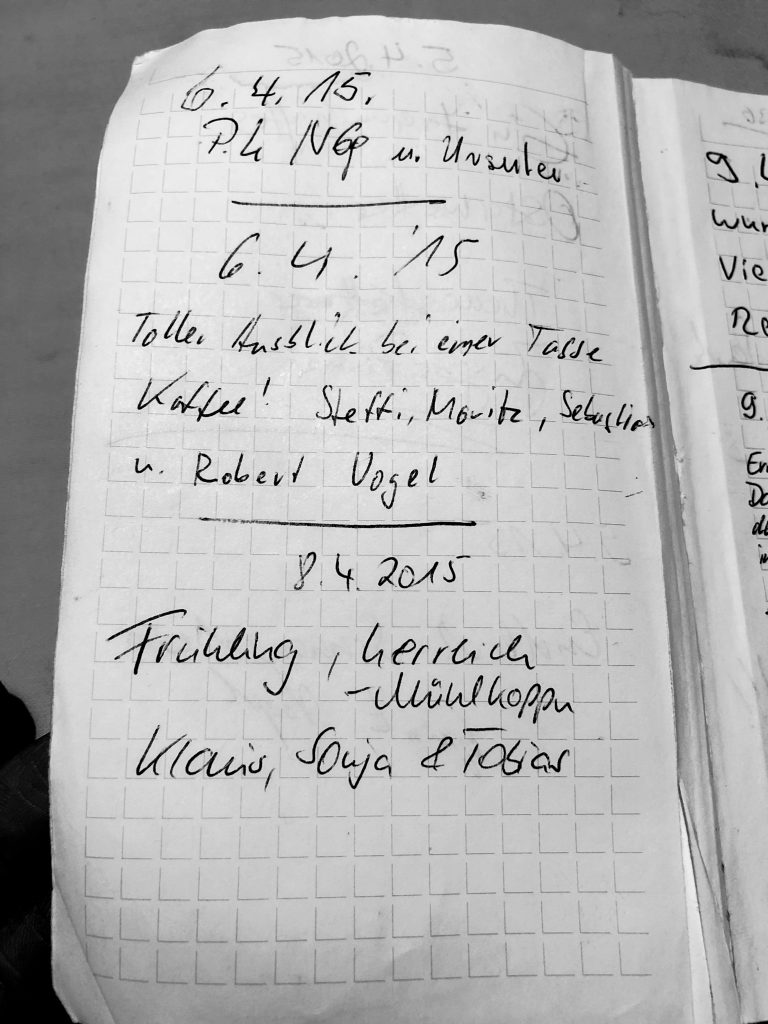 6. 4. 15.
u.
6. 4. '15
Toller Ausblick bei einer Tasse
Kaffee! Steffi, Moritz, Sebastian
u. Robert Vogel
8.4.2015
Frühling, herrlich
-Mühlkoppn
Klaus, Sonja & Tobias
9.
wur
Vie
9.